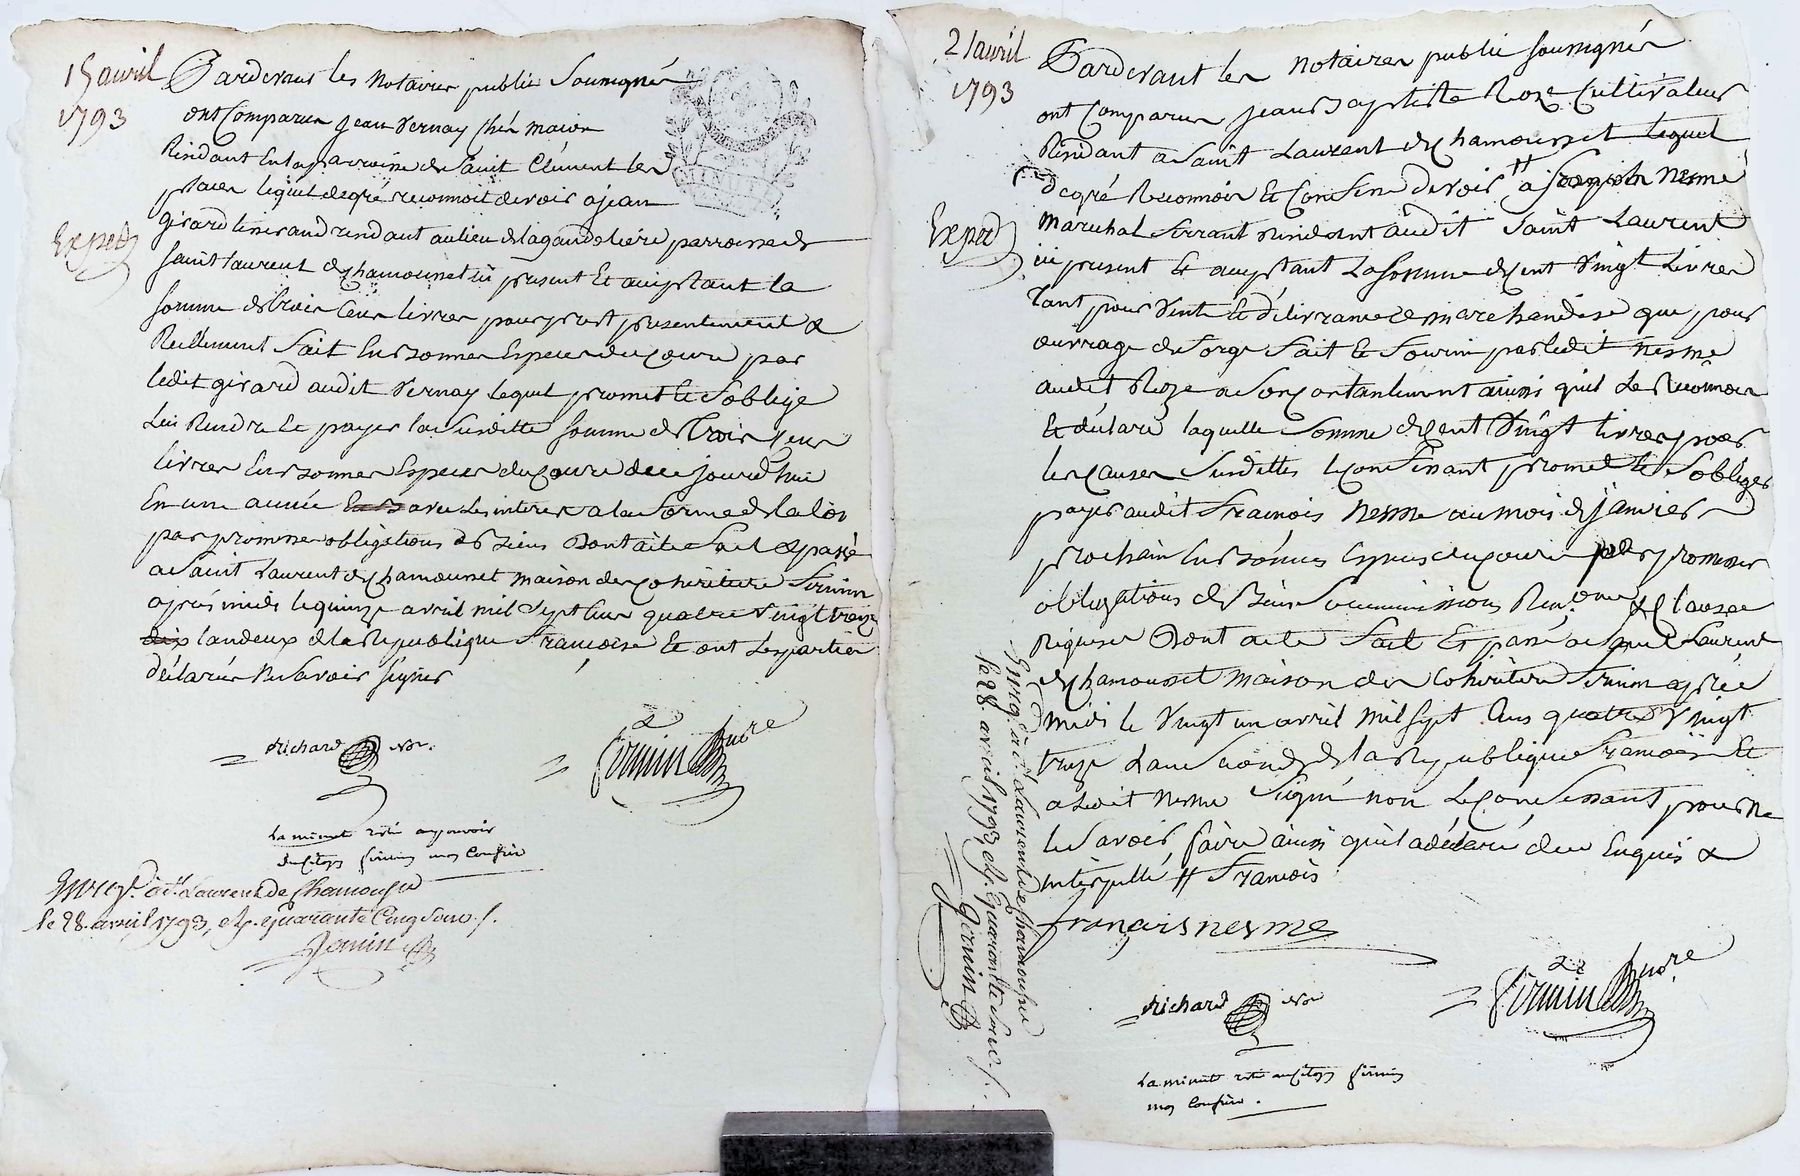 15 avril
1793
Pardevant les notaires public soussignés
ont Comparu jean vernay
Résidant En la parroisse de saint Clément les
places lequel de gré reconnoit devoir a jean
girard tisserand résidant au lieu de la parroisse de
saint laurent de chamousset ici present Et acceptant la
somme de trois cens livres pour prest presentement &
Réellement fait En bonnes Especes du cours par
ledit girard audit vernay Lequel promet Et s'oblige
Lui Rendre Et payer la susditte somme de trois cens
livres En bonnes Especes du cours de ce jourd'hui
En une année avec les interets a la forme de la loi
par promesse obligations de Biens Dont acte fait & passé
a saint Laurent de chamousset maison des cohéritiers firmin
après midi le quinze avril mil sept cens quatre vingt treize
l'an deux de la Republique francoise Et ont les parties
déclarés ne savoir signer
Exped
Richard Nore
&
firmin Nore
La minute resté au pouvoir
du citoyen firmin mon confrère
Enreg. à St Laurent de Chamousset
le 28. avril 1793, quarante Cinq sous
21 avril
1793
Pardevant les notaires public soussignés
ont Comparu jean Baptiste Roze Cultivateur
Résidant a saint Laurent de chamousset lequel
de gré Reconnois Et Confesse devoir # a nesme
marechal ferrant résidant audit saint Laurent
ici present Et acceptant La somme de cent vingt Livres
tant pour vente Et délivrance de marchandise que pour
ouvrage de forge fait Et fourni par ledit nesme
audit Roze a son contantement ainsi qu'il Le Reconnois
Et déclare laquelle somme de cent vingt livres pour
les causes susdittes le confessant promet Et s'oblige
payer audit francois nesme au mois de janvier
prochain En bonnes Especes du cours par promesse
obligations de Biens soumissions Renon & clauses
Requise Dont acte fait Et passé a saint Laurent
de chamousset maison des cohéritiers firmin après
midi le vingt un avril mil sept Cens quatre vingt
treize L'an second de la Republique francoise Et
a Ledit nesme signé non Le confessant pour ne
le savoir faire ainsi qu'il a déclaré de ce Enquis &
interpellé # francois
Exped
françois nesme
Richard Nore
&
firmin Nore
La minute resté au citoyen firmin
mon confrère.
Enreg. à St Laurent de Chamousset
le 28. avril 1793, quarante sous